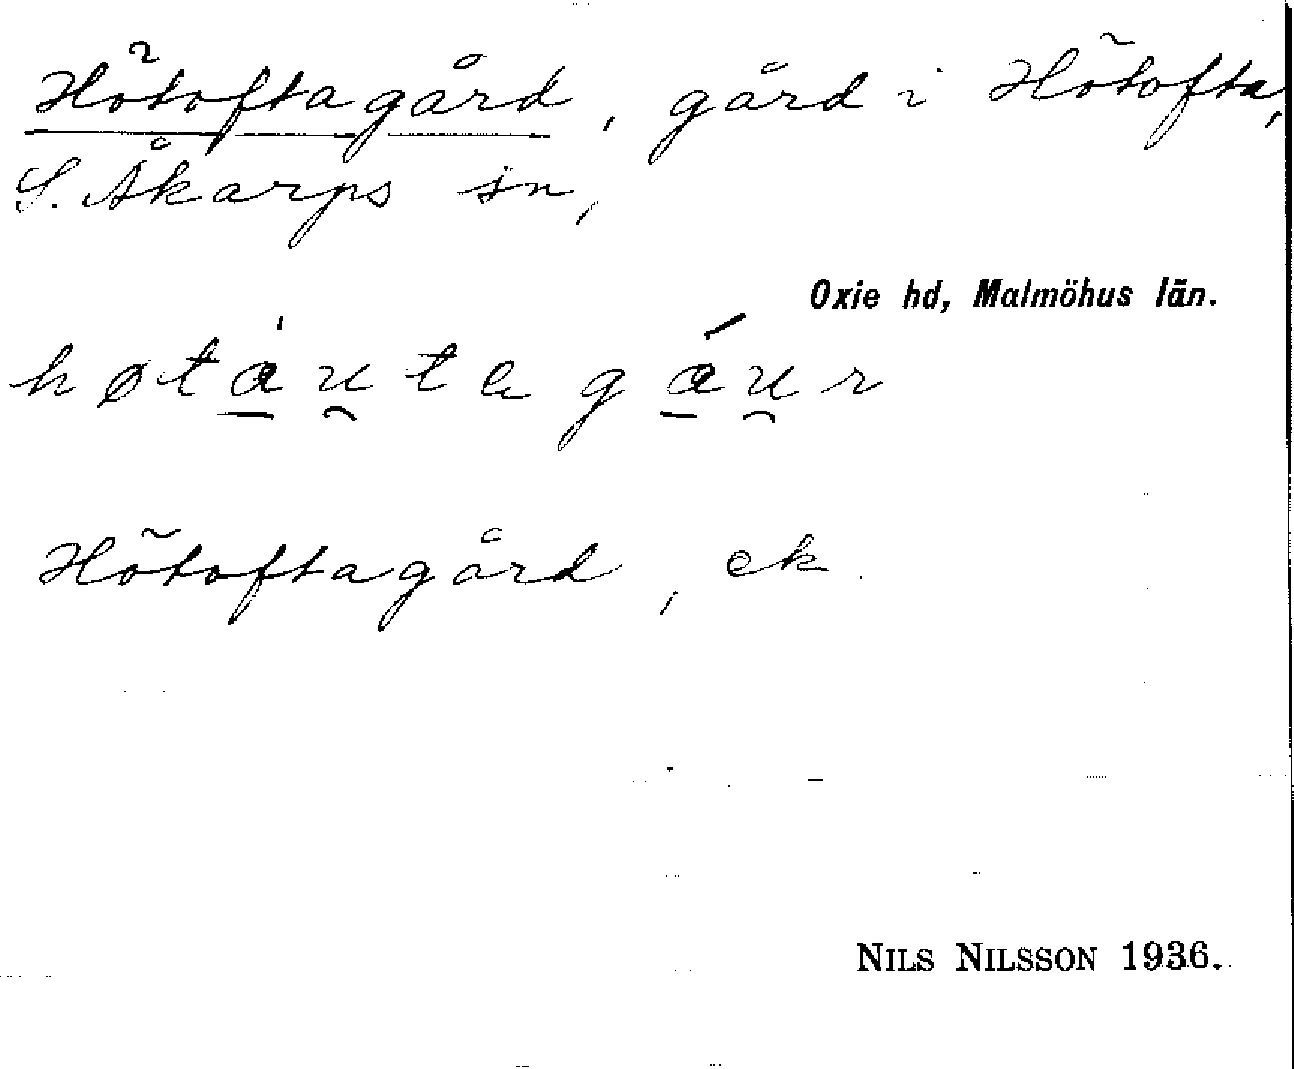 Hötoftagård, gård i Hötofta,
S. Åkarps sn,
Oxie hd, Malmöhus län.
Hötoftagård, ek.
NILS NILSSON 1936.